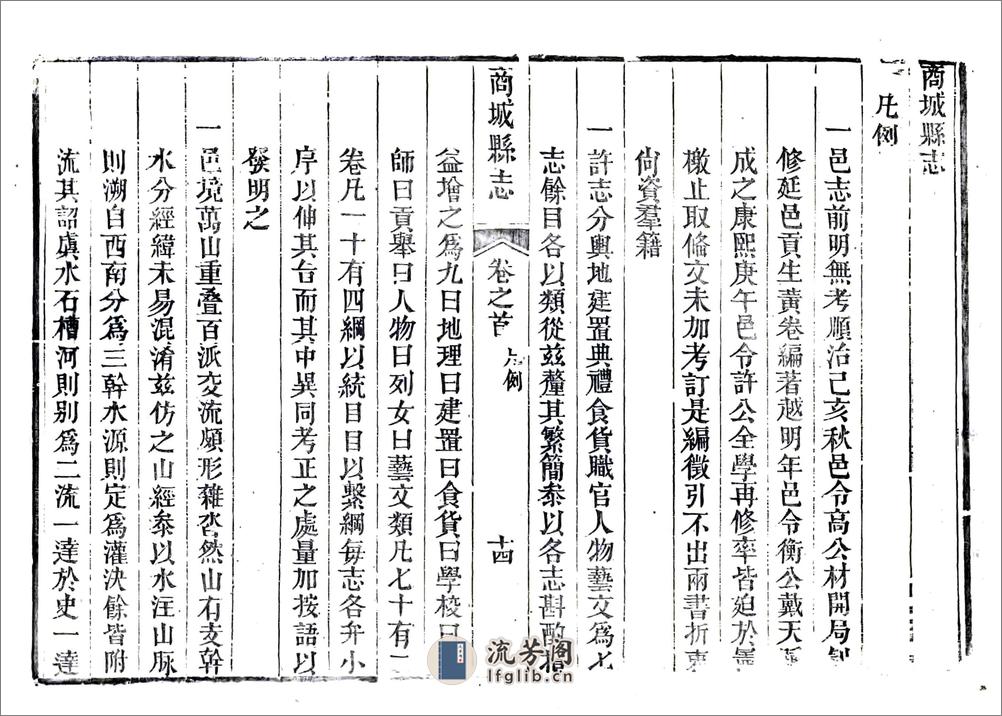 商城縣志
凡例
一邑志前明無考順治己亥秋邑令高公材開局
修延邑貢生黃卷編著越明年邑令衡公戴天
成之康熙庚午邑令許公全學再修率皆迫於
檄止取俻文未加考訂是編徵引不出兩書折衷
尙資羣籍
一許志分輿地建置典禮食貨職官人物藝文爲七
志餘目各以類從玆釐其繁簡叅以各志斟酌損
益增之爲九曰地理曰建置曰食貨曰學校曰
師曰貢舉曰人物曰列女曰藝文類凡七十有
卷凡一十有四綱以統目目以繫綱每志各弁小
序以伸其旨而其中異同考正之處量加按語以
發明之
一邑境萬山重疊百派交流頗形雜沓然山有支幹
水分經緯未易混淆玆仿之山經叅以水注山脉
則溯自西南分爲三幹水源則定爲灌決餘皆附
流其詔虞水石槽河則别爲二流一達於史一達
商城縣志
卷之首
凡例
十四
流芳阁
lfglib.cn